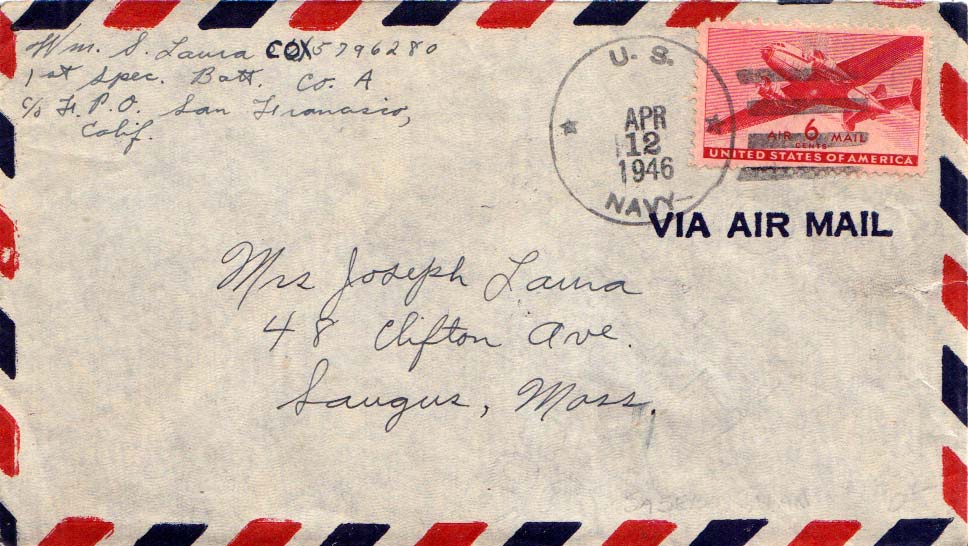 Wm. S. Laura COX 5796280
1st Spec. Batt. Co. A
c/o F.P.O. San Francisco,
Calif.
U. S.
APR
12
1946
NAVY
AIR 6 MAIL
CENTS
UNITED STATES OF AMERICA
VIA AIR MAIL
Mrs Joseph Laura
48 Clifton Ave.
Saugus, Mass.